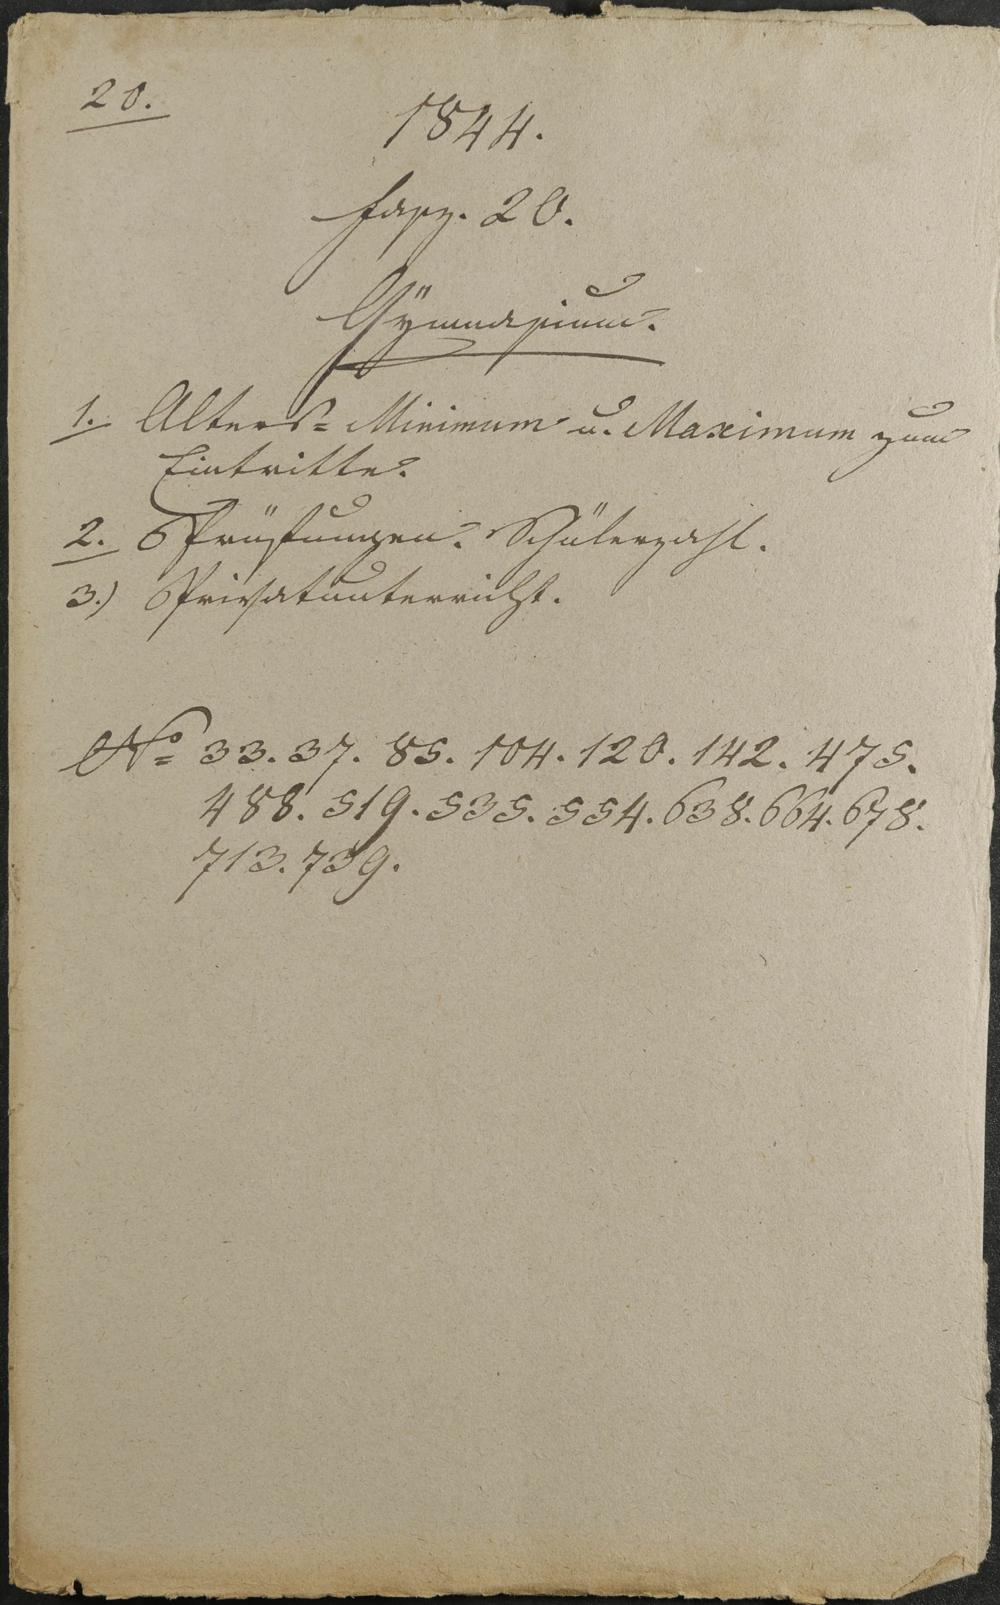 20.
1844.
Fasz. 20.
Gÿmnasium.
1. Alters= Minimum u. Maximum zum
Eintritte.
2. Prüfungen. Schülerzahl.
3.) Privatunterricht.
No= 33. 37. 85. 104. 120. 142. 475.
488. 519. 535. 554. 638. 664. 678.
713. 739.